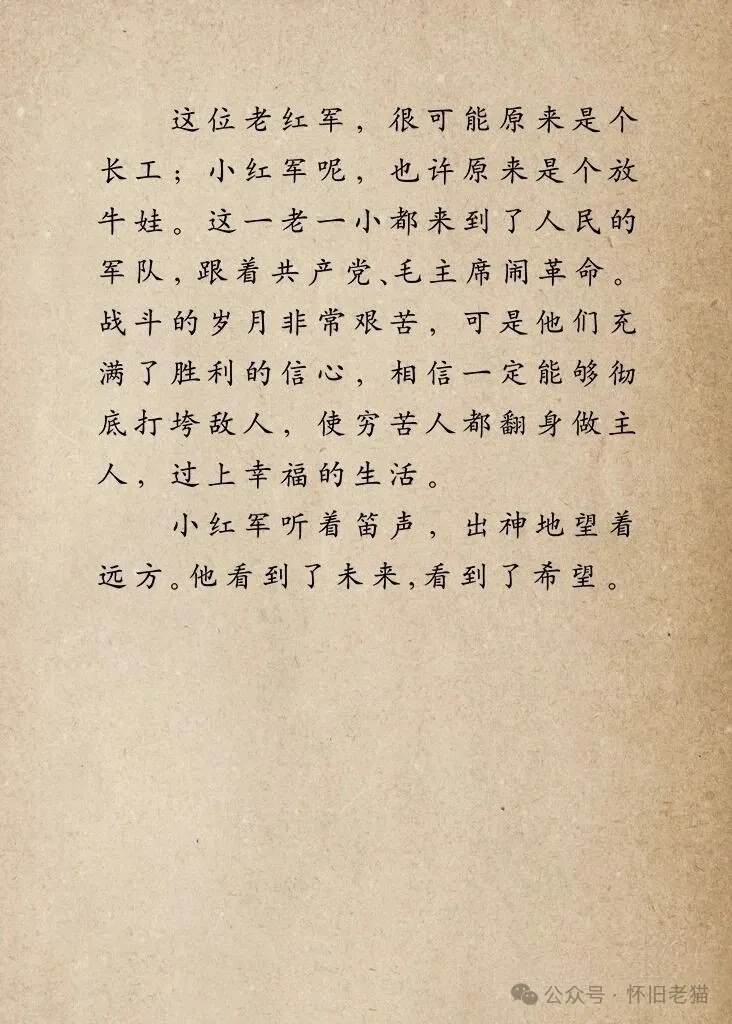 这位老红军，很可能原来是个
长工；小红军呢，也许原来是个放
牛娃。这一老一小都来到了人民的
军队，跟着共产党、毛主席闹革命。
战斗的岁月非常艰苦，可是他们充
满了胜利的信心，相信一定能够彻
底打垮敌人，使穷苦人都翻身做主
人，过上幸福的生活。
小红军听着笛声，出神地望着
远方。他看到了未来，看到了希望。
公众号·怀旧老猫